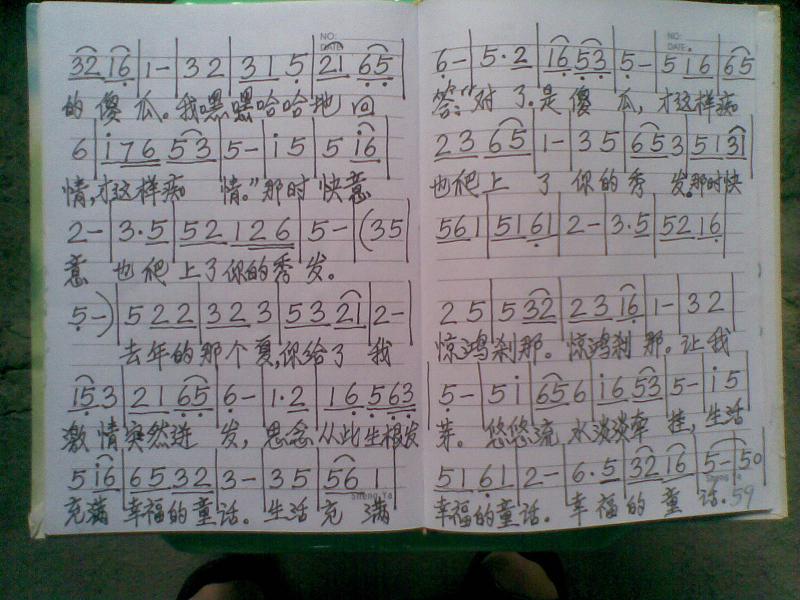 NO:
DATE:
32 16 | 1 - | 3 2 | 31 5 | 21 65 |
的傻瓜。我嘿嘿哈哈地回
6 | 176 53 | 5 - | i 5 | 5 i6 |
情,才这样痴情。”那时快意
2 - | 3·5 | 52 126 | 5 - | (35
意也爬上了你的秀发。
5 -) | 5 22 | 32 3 | 53 21 | 2 - |
去年的那个夏,你给了我
15 3 | 21 65 | 6 - | 1·2 | 16 563 |
激情突然迸发,思念从此生根发
5 i6 | 65 32 | 3 - | 35 | 56 1 |
充满幸福的童话。生活充满
Sheng Ya
NO:
DATE:
6 - | 5·2 | 16 53 | 5 - | 5 16 | 65
答:“对了。是傻瓜,才这样痴
23 65 | 1 - | 35 | 65 3 | 51 31 |
也爬上了你的秀发。那时快
56 1 | 51 61 | 2 - | 3·5 | 52 16 |
2 5 | 5 32 | 23 16 | 1 - | 3 2
惊鸿刹那。惊鸿刹那。让我
5 - | 5 i | 65 6 | i6 53 | 5 - | i 5
芽。悠悠流水淡淡牵挂,生活
51 61 | 2 - | 6·5 | 32 16 | 5 - | 5 0
幸福的童话。幸福的童话。
59